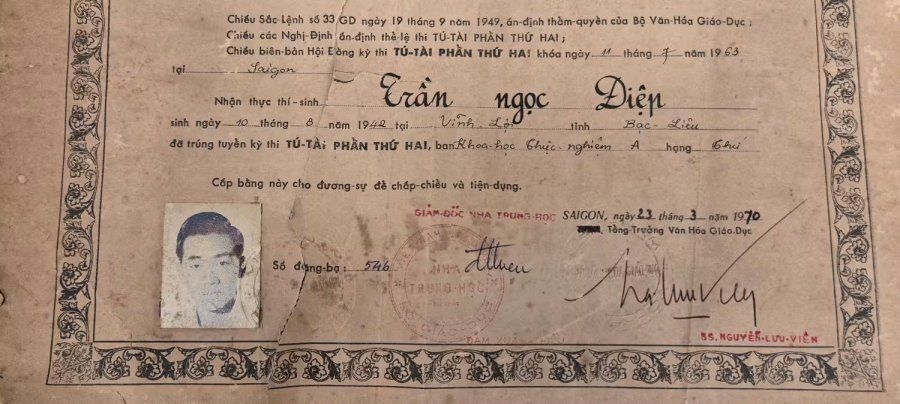 Chiếu Sắc-Lệnh số 33 GD ngày 19 thg 9 năm 1949, ấn-định thẩm-quyền của Bộ Văn-Hóa Giáo-Dục ;
Chiếu các Nghị-Định ấn-định thể-lệ thi TÚ-TÀI PHẦN THỨ HAI ;
Chiếu biên-bản Hội Đồng kỳ thi TÚ-TÀI PHẦN THỨ HAI khóa ngày 11 tháng 7 năm 1963
tại Saigon
Nhận thực thí-sinh Trần ngọc Điệp
sinh ngày 10 tháng 8 năm 1942 tại Vĩnh-Lợi tỉnh Bạc-Liêu
đã trúng tuyển kỳ thi TÚ-TÀI PHẦN THỨ HAI, ban Khoa-học Thực-nghiệm A hạng Thứ
Cấp bằng này cho đương-sự để chấp-chiếu và tiện-dụng.
GIÁM-ĐỐC NHA TRUNG-HỌC SAIGON, ngày 23 tháng 3 năm 1970
Tổng-Trưởng Văn-Hóa Giáo-Dục
Số đăng-bạ : 546
NHA
TRUNG-HỌC
BS. NGUYỄN-LƯU-VIÊN